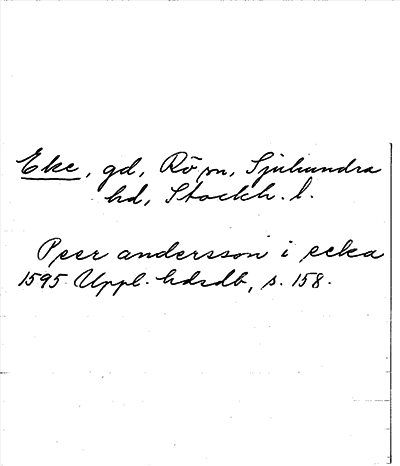 Eke, gd, Rö sn, Sjuhundra
hd, Stockh. l.
Peer andersson i ecka
1595 Uppl. hdrdb, s. 158.